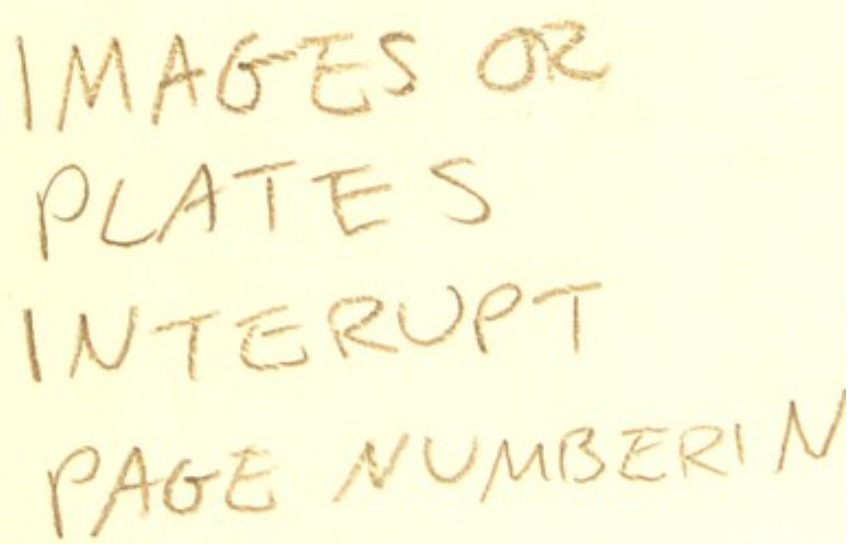 IMAGES OR
PLATES
INTERUPT
PAGE NUMBERIN